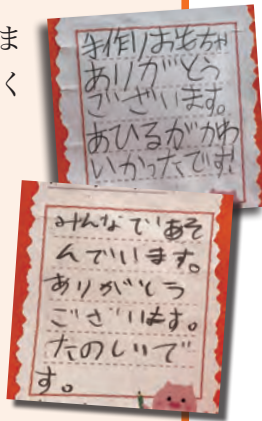 ま
く
手作りおもちゃ
ありがとう
ございます。
あひるがかわ
いかったです!
みんなであそ
んでいます。
ありがとう
ございます。
たのしいで
す。